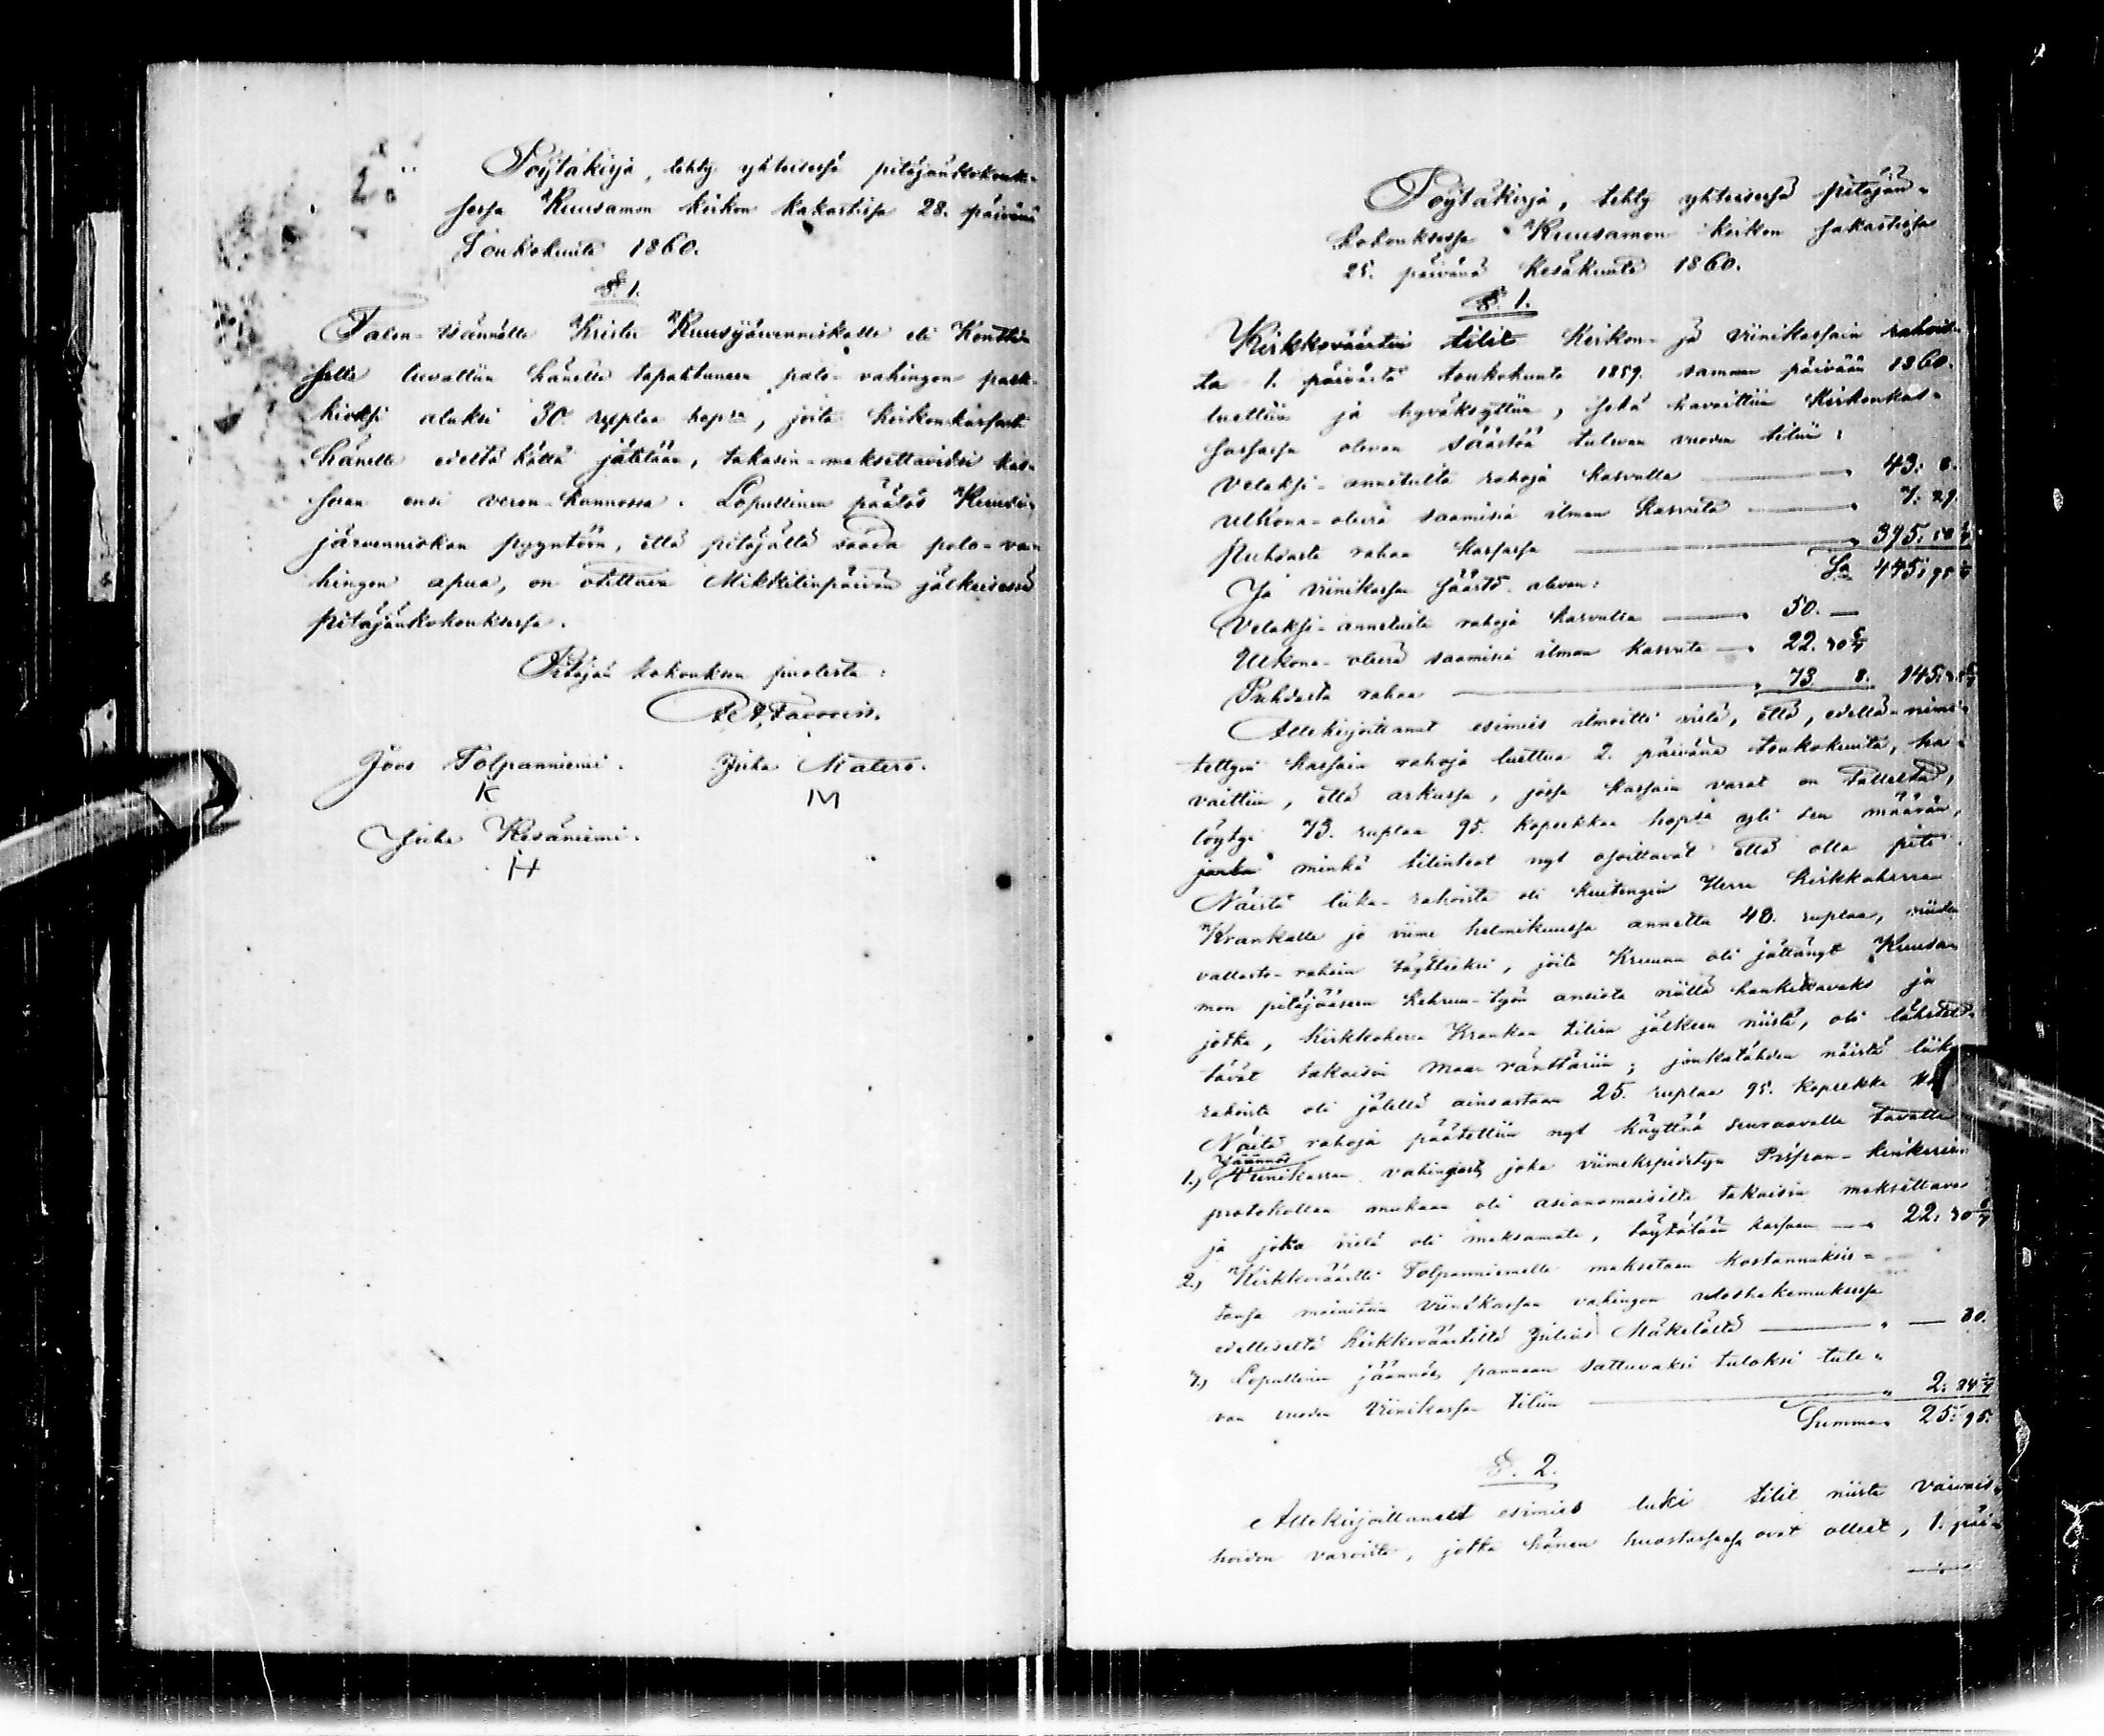 Pöytäkirja, tehty yhteisessä pitäjänkokouk-
sessa Kuusamon kirkon sakastissa 28. päivänä
Toukokuuta 1860.
§. 1.
Talon-isännälle Krister Kuusijärvenniskalle eli Kontti-
selle luvattiin hänelle tapahtuneen palo-vahingon palk-
kioksi aluksi 30 ruplaa hopia, joita kirkonkassasta
hänelle edeltä kättä jätetään, takasin-maksettaviksi kas-
saan ensi veron-kannossa. Lopullinen päätös Kuusi-
järvenniskan pyyntöön, että pitäjältä saada palo-va-
hingon apua, on otettava Mikkelinpäivän jälkeisessä
pitäjänkokouksessa.
Pitäjän kokouksen puolesta:
Joos Tolpanniemi. Juha Matero.
K M
Juha Kesäniemi.
H
Pöytäkirja, tehty yhteisessä pitäjän-
kokouksessa Kuusamon kirkon sakastissa
25. päivänä Kesäkuuta 1860.
§. 1.
Kirkkoväärtin tilit Kirkon- ja viinikassain rahois-
ta 1. päivästä toukokuuta 1859. samaan päivään 1860.
luettiin ja hyväksyttiin, sekä havaittiin Kirkonkas-
sassa olevan säästöä tulevan vuoden tiliin:
Velaksi-annetuita rahoja kasvulla 43: 8.
Ulkona-olevia saamisia ilman kasvuta 7: 29.
Puhdasta rahaa kassassa 395: 58
Ja viinikassan säästö olevan: Sa 445: 95
Velaksi-annetuita rahoja kasvulla 50. —
Ulkona-olevia saamisia ilman kasvuta 22. 30 6/7
Puhdasta rahaa 73 8. 145:
Allekirjoittanut esimies ilmoitti vielä, että, edellä-nimi-
tettyin kassain rahoja luettua 2. päivänä toukokuuta, ha-
vaittiin, että arkussa, jossa kassain varat on tallella,
löytyi 73. ruplaa 95. kopeekkaa hopia yli sen määrän,
minkä tilinteot nyt osoittavat että olla piti.
Näistä liika-rahoista oli kuitengin Herra Kirkkoherra
Krankalle jo viime helmikuussa annettu 48. ruplaa, niiden
vallasto-rahain täytteeksi, joita Kruunu oli jättänyt Kuusa-
mon pitäjääseen kehruu-työn ansiota niillä hankittavaks ja
jotka, Kirkkoherra Krankan tilien jälkeen niistä, oli lähetet-
tävät takaisin maan ränttäriin; jonkatähden näistä liika
rahoista oli jälellä ainoastaan 25. ruplaa 95. kopeekka
Näitä rahoja päätettiin nyt käyttää seuraavalla tavalla
1.) Jäännös Viinikassan vahingosta, joka viimekspidetyn Piispan-kinkerein
protokollan mukaan oli asianomaisilta takaisin maksettava
ja joka vielä oli maksamata, täytetään kassaan 22: 30 6/7
2.) Kirkkoväärtti Tolpanniemelle maksetaan kostannuksis-
tansa mainitun viinikassan vahingon uloshakemuksessa
edelliseltä kirkkoväärtiltä Julius Mäkelältä — 80.
3.) Lopullinen jäännös, pannaan sattuvaksi tuloksi tule-
van vuoden Viinikassan tiliin 2: 84 1/7
Summa 25: 95.
§. 2.
Allekirjoittanut esimies luki tilit niistä vaivais-
hoidon varoista, jotka hänen huostassansa ovat olleet, 1. päi-